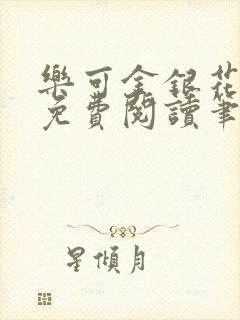 樂可金銀花
免費閱讀筆
星傾月